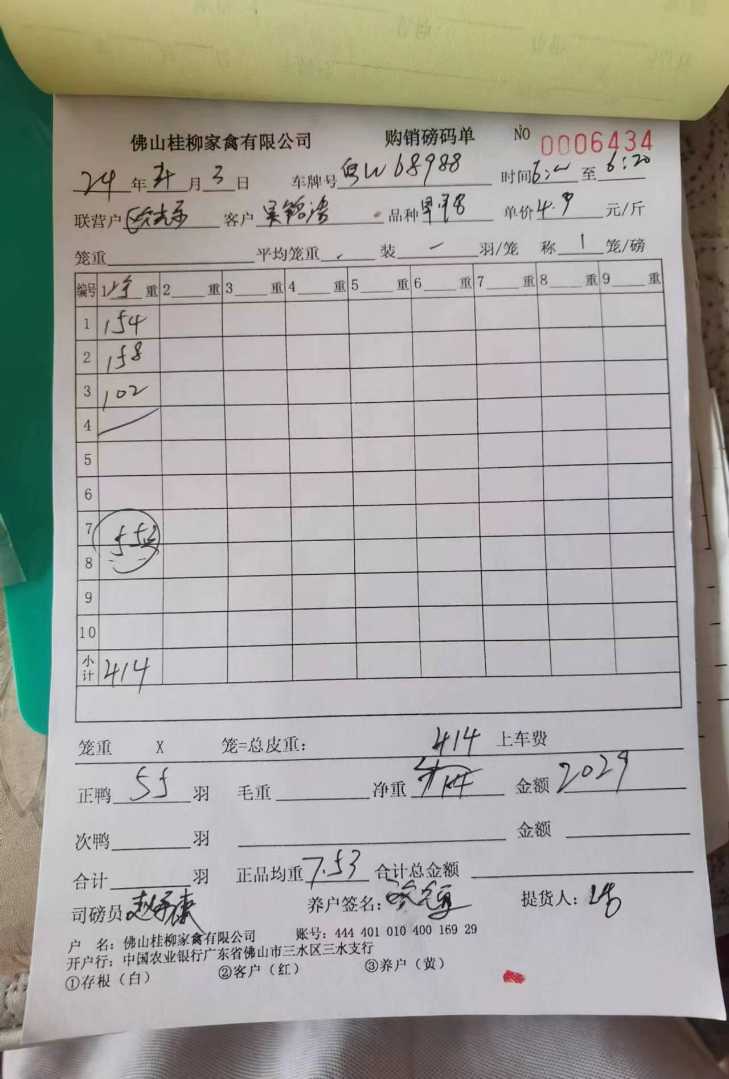 佛山桂柳家禽有限公司 购销磅码单 NO 0006434
24 年 月 3 日 车牌号 W68988 时间 6: 至 6:20
联营户 客户 品种 单价 4.9 元/斤
笼重 平均笼重 装 一 羽/笼 称 1 笼/磅
编号 1 重 2 重 3 重 4 重 5 重 6 重 7 重 8 重 9 重
1 154
2 158
3 102
4
5
6
7
8 55
9
10
小计 414
笼重 X 笼=总皮重: 414 上车费
正鸭 55 羽 毛重 净重 金额 2029
次鸭 羽 金额
合计 羽 正品均重 7.53 合计总金额
司磅员 养户签名: 提货人:
户 名: 佛山桂柳家禽有限公司 账号: 444 401 010 400 169 29
开户行: 中国农业银行广东省佛山市三水区三水支行
①存根(白) ②客户(红) ③养户(黄)